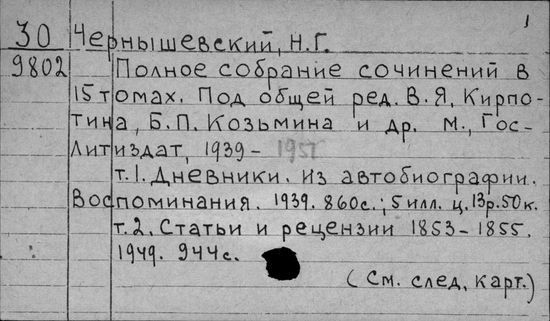 1
30 Чернышевский, Н.Г.
9802 Полное собрание сочинений в
15 томах. Под общей ред. В.Я. Кирпо-
тина, Б.П. Козьмина и др. М., Гос-
литиздат, 1939-
т.1. Дневники. Из автобиографии.
Воспоминания. 1939. 860с.; 5 илл. ц. 13р.50к.
т.2. Статьи и рецензии 1853-1855.
1949. 944с.
(См. след. карт.)